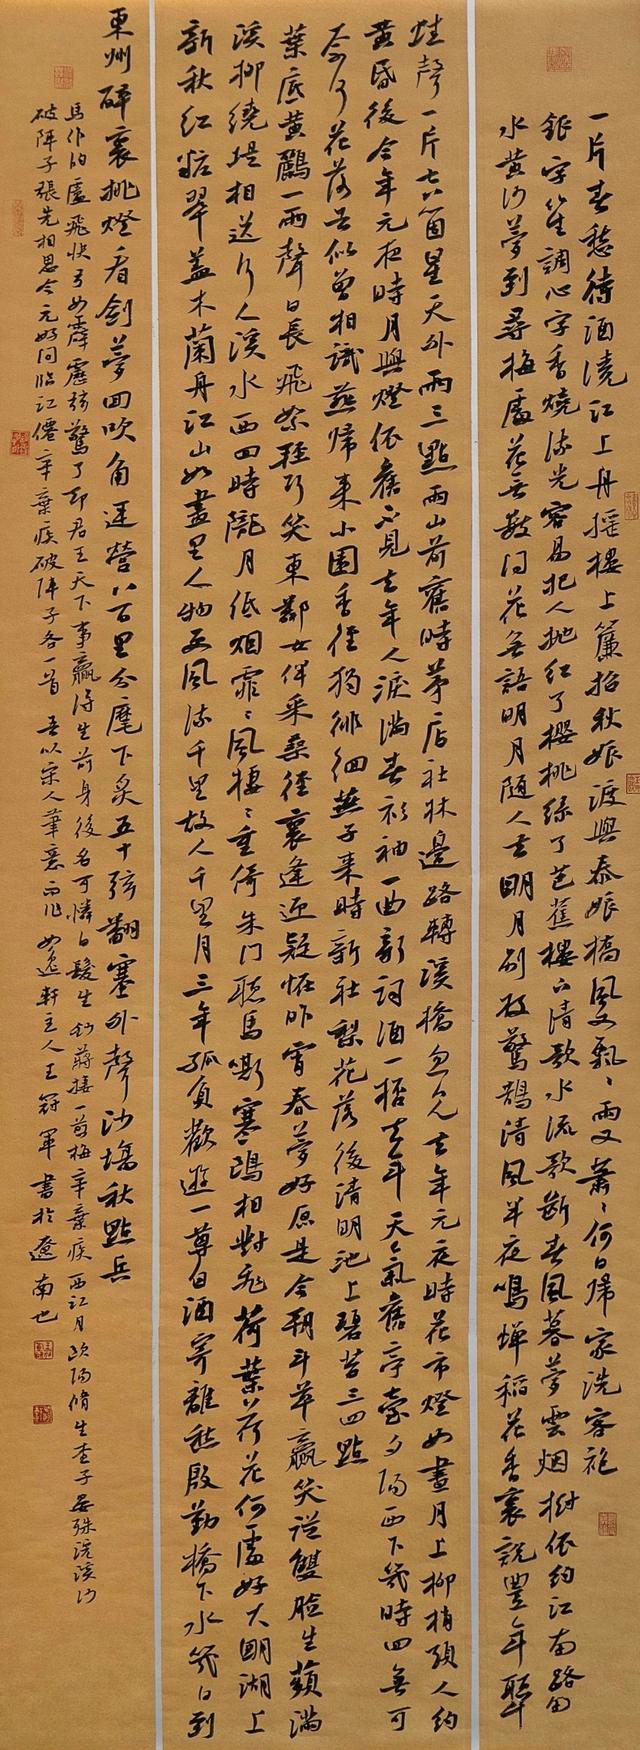 一片春愁待酒澆江上舟搖樓上簾招秋娘渡與泰娘橋風又飄〻雨又蕭〻何日歸家洗客袍
銀字笙調心字香燒流光容易把人拋紅了櫻桃綠了芭蕉樓下清歌水流歌斷春風暮夢雲烟樹依約江南路
水黃沙夢到尋梅處花無數問花無語明月隨人去明月別枝驚鵲清風半夜鳴蟬稻花香裏說豐年聽取
蛙聲一片七八箇星天外兩三點雨山前舊時茅店社林邊路轉溪橋忽見去年元夜時花市燈如晝月上柳梢頭人約
黃昏後今年元夜時月與燈依舊不見去年人淚滿春衫袖一曲新詞酒一杯去年天氣舊亭臺夕陽西下幾時回無可
奈何花落去似曾相識燕歸來小園香徑獨徘徊燕子來時新社梨花落後清明池上碧苔三四點
葉底黃鸝一兩聲日長飛絮輕巧笑東鄰女伴采桑徑裏逢迎疑怪昨宵春夢好原是今朝鬥草贏笑從雙臉生蘋滿
溪柳繞堤相送行人溪水西回時隴月低烟霏〻風棲〻重倚朱門聽馬嘶寒鷗相對飛荷葉荷花何處好大明湖上
新秋紅粧翠蓋木蘭舟江山如畫里人物更風流千里故人千里月三年孤負歡遊一尊白酒寄離愁殷勤橋下水幾日到
東州醉裏挑燈看劍夢回吹角連營八百里分麾下炙五十弦翻塞外聲沙場秋點兵
馬作的盧飛快弓如霹靂弦驚了却君王天下事贏得生前身後名可憐白髮生 鈔蔣捷一剪梅辛棄疾西江月歐陽脩生查子晏殊浣溪沙
破陣子張先相思令元好問臨江僊辛棄疾破陣子各一首 吾以宋人筆意而作 如逸軒主人王冠軍書於遼南也